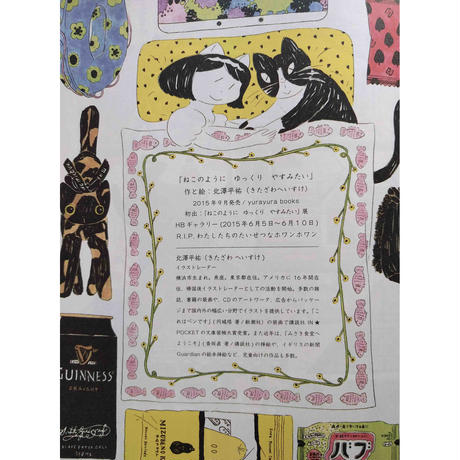 「ねこのように ゆっくり やすみたい」
作と絵：北澤平祐（きたざわへいすけ）
2015年9月発売 / yurayura books
初出：「ねこのように ゆっくり やすみたい」展
HBギャラリー（2015年6月5日〜6月10日）
R.I.P. わたしたちのたいせつなホワンホワン
北澤平祐（きたざわ へいすけ）
イラストレーター
横浜市生まれ、魚座。東京都在住。アメリカに16年間在
住、帰国後イラストレーターとしての活動を開始。多数の雑
誌、書籍の装画や、CDのアートワーク、広告からパッケー
ジまで国内外の幅広い分野でイラストを提供しています。「こ
れはペンです」（円城塔 著 / 新潮社）の装画で講談社 IN★
POCKETの文庫装幀大賞受賞。また近年は、「みさき食堂へ
ようこそ」（香坂直 著 / 講談社）の挿絵や、イギリスの新聞
Guardianの絵本挿絵など、児童向けの作品も多数。
GUINNESS
DRAUGHT
MIZUREN
バブ